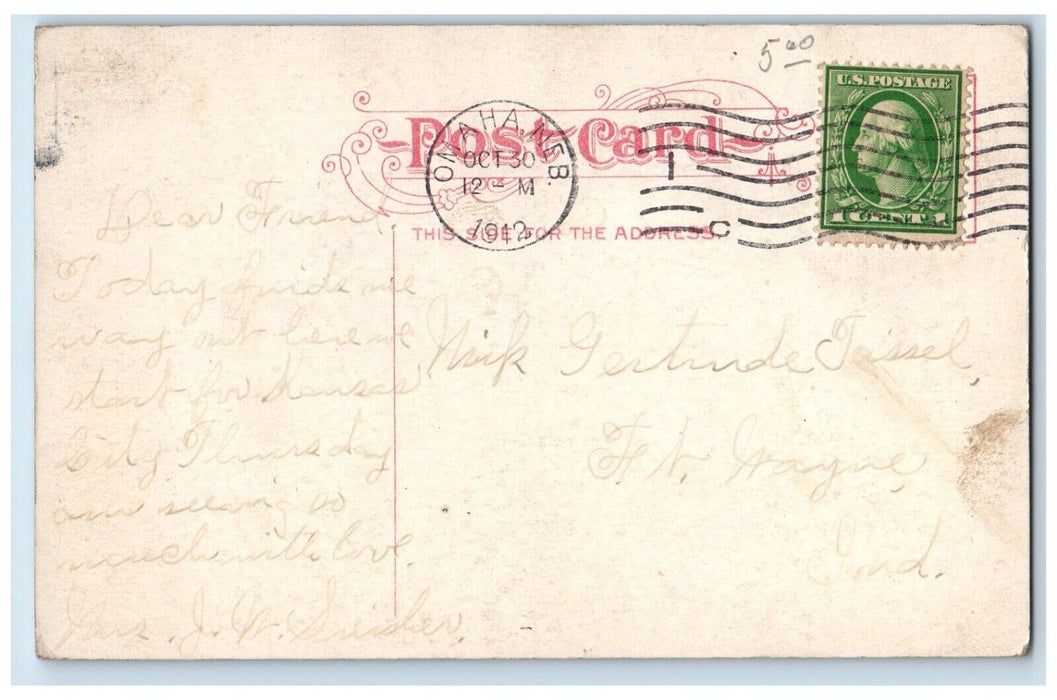 5⁶⁰
U.S. POSTAGE
1 CENT 1
Post Card
OMAHA, NEB.
OCT 30
12 - M
1912
1
C
THIS SIDE FOR THE ADDRESS.
Dear Friend
Today finds me
way out here we
start for Kansas
City Thursday
am seeing so
much with love.
Mrs. J. W.
Gertrude Tissel,
Ft. Wayne,
Ind.